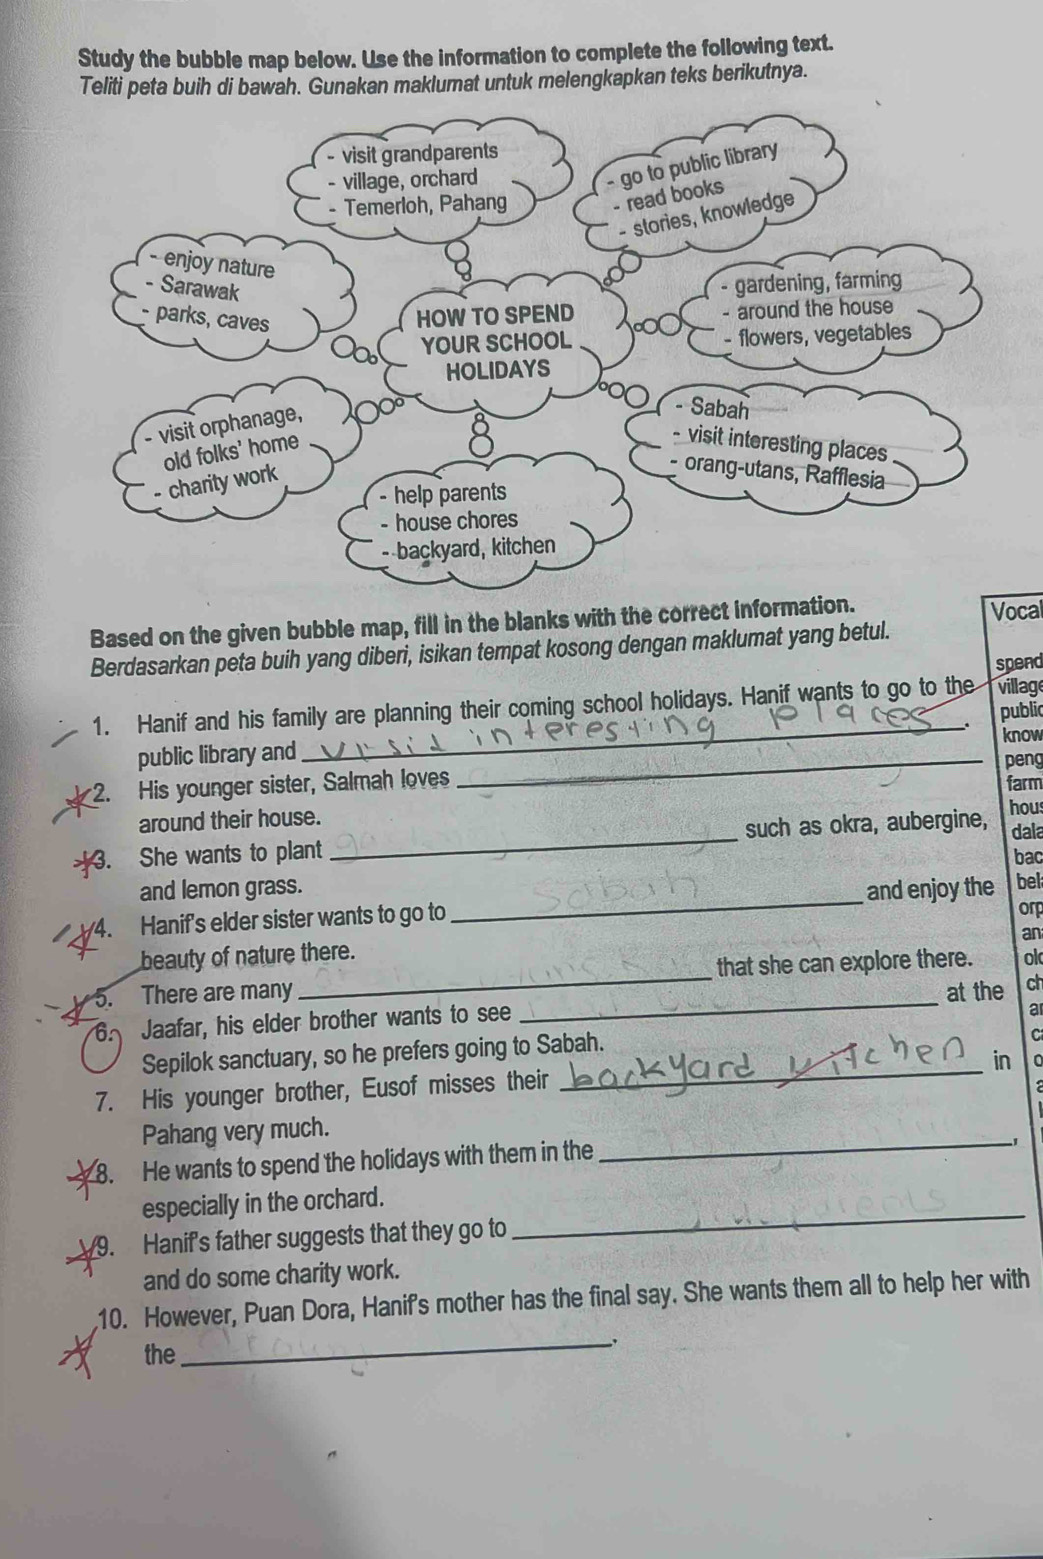 Study the bubble map below. Use the information to complete the following text.
Teliti peta buih di bawah. Gunakan maklumat untuk melengkapkan teks berikutnya.
- visit grandparents
- village, orchard
- Temerloh, Pahang
- go to public library
- read books
- stories, knowledge
- enjoy nature
- Sarawak
- parks, caves
HOW TO SPEND
YOUR SCHOOL
HOLIDAYS
- gardening, farming
- around the house
- flowers, vegetables
- visit orphanage,
old folks' home
- charity work
- Sabah
- visit interesting places
- orang-utans, Rafflesia
- help parents
- house chores
- backyard, kitchen
Based on the given bubble map, fill in the blanks with the correct information.
Berdasarkan peta buih yang diberi, isikan tempat kosong dengan maklumat yang betul.
1. Hanif and his family are planning their coming school holidays. Hanif wants to go to the
public library and visit interesting places.
2. His younger sister, Salmah loves
around their house.
3. She wants to plant such as okra, aubergine,
and lemon grass.
4. Hanif's elder sister wants to go to sabah and enjoy the
beauty of nature there.
5. There are many that she can explore there.
6. Jaafar, his elder brother wants to see at the
Sepilok sanctuary, so he prefers going to Sabah.
7. His younger brother, Eusof misses their backyard kitchen in
Pahang very much.
8. He wants to spend the holidays with them in the ,
especially in the orchard.
9. Hanif's father suggests that they go to
and do some charity work.
10. However, Puan Dora, Hanif's mother has the final say. She wants them all to help her with
the .
Vocal
spend
village
public
know
peng
farm
hous
dala
bac
bel
orp
an
old
ch